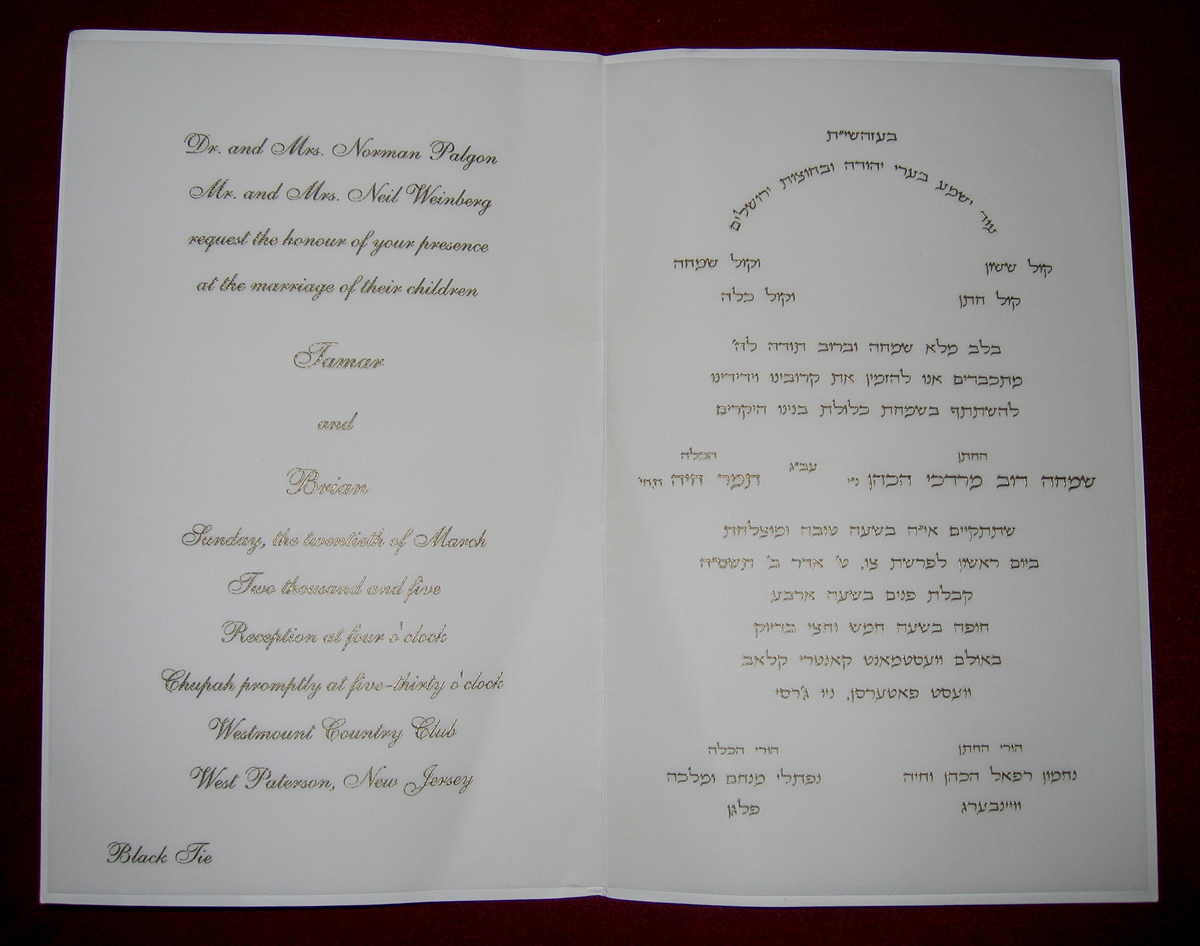 Dr. and Mrs. Norman Palgon
Mr. and Mrs. Neil Weinberg
request the honour of your presence
at the marriage of their children
Tamar
and
Brian
Sunday, the twentieth of March
Two thousand and five
Reception at four o'clock
Chupah promptly at five-thirty o'clock
Westmount Country Club
West Paterson, New Jersey
Black Tie
בעזהשי״ת
עוד ישמע בערי יהודה ובחוצות ירושלים
קול ששון וקול שמחה
קול חתן וקול כלה
בלב מלא שמחה וברוב תודה לה׳
מתכבדים אנו להזמין את קרובינו וידידינו
להשתתף בשמחת כלולת בנינו היקרים
החתן הכלה
שמחה דוב מרדכי הכהן ני׳ עב״ג תמר חיה תחי׳
שתתקיים אי״ה בשעה טובה ומוצלחת
ביום ראשון לפרשת צו, ט׳ אדר ב׳ תשס״ה
קבלת פנים בשעה ארבע
חופה בשעה חמש וחצי בדיוק
באולם וועסטמאנט קאנטרי קלאב
וועסט פאטערסן, ניו ג׳רסי
הורי החתן הורי הכלה
נחמון רפאל הכהן וחיה נפתלי מנחם ומלכה
וויינבערג פלגן